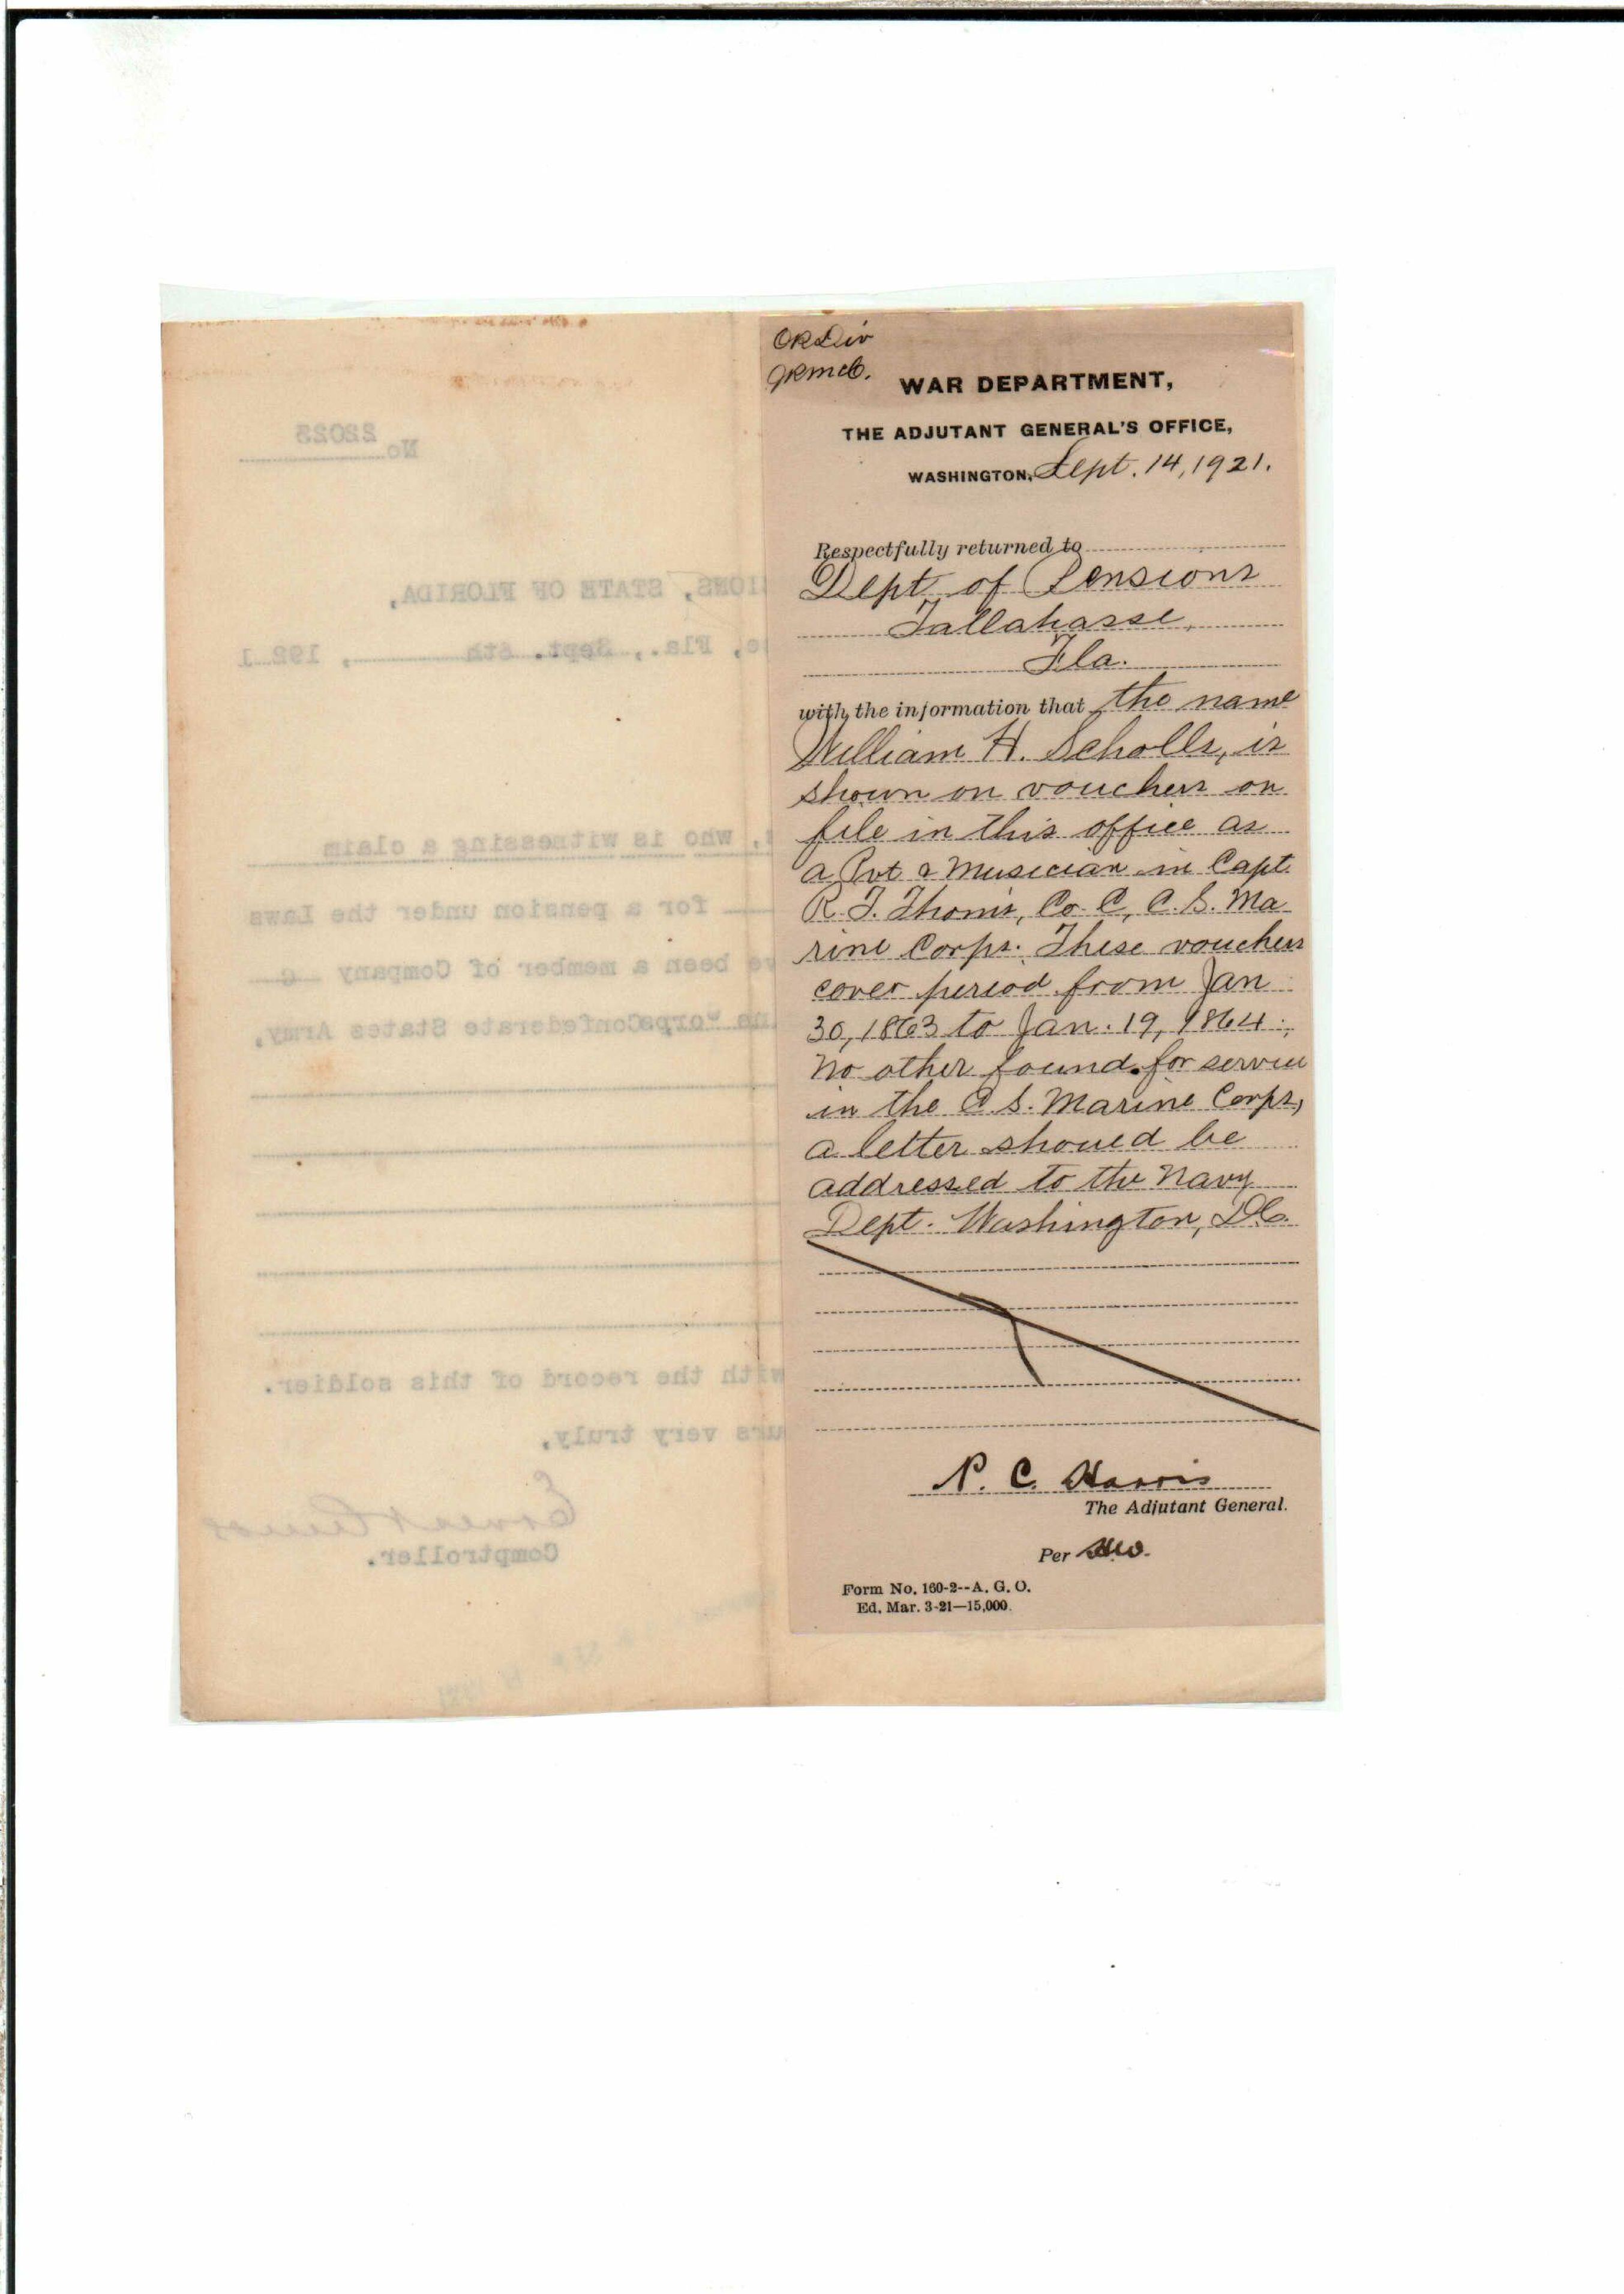 OR Div
WAR DEPARTMENT,
THE ADJUTANT GENERAL'S OFFICE,
WASHINGTON, Sept. 14, 1921.
Respectfully returned to
Dept of Pensions
Tallahasse,
Fla.
with the information that the name
William H. Scholls, is
shown on vouchers on
file in this office as
a Pvt & Musician in Capt.
R. T. Thom's, Co. C, C. S. Ma
rine Corps. These vouchers
cover period from Jan
30, 1863 to Jan. 19, 1864.
No other found. for service
in the C. S. Marine Corps,
a letter should be
addressed to the Navy
Dept. Washington, D.C.
P. C. Harris
The Adjutant General.
Per
Form No. 160-2--A. G. O.
Ed. Mar. 3-21—15,000.
No 22023
IONS, STATE OF FLORIDA,
e, Fla., Sept. 6th, 1921
, who is witnessing a claim
for a pension under the Laws
ve been a member of Company C
ine Corps Confederate States Army,
with the record of this soldier.
urs very truly,
Comptroller.